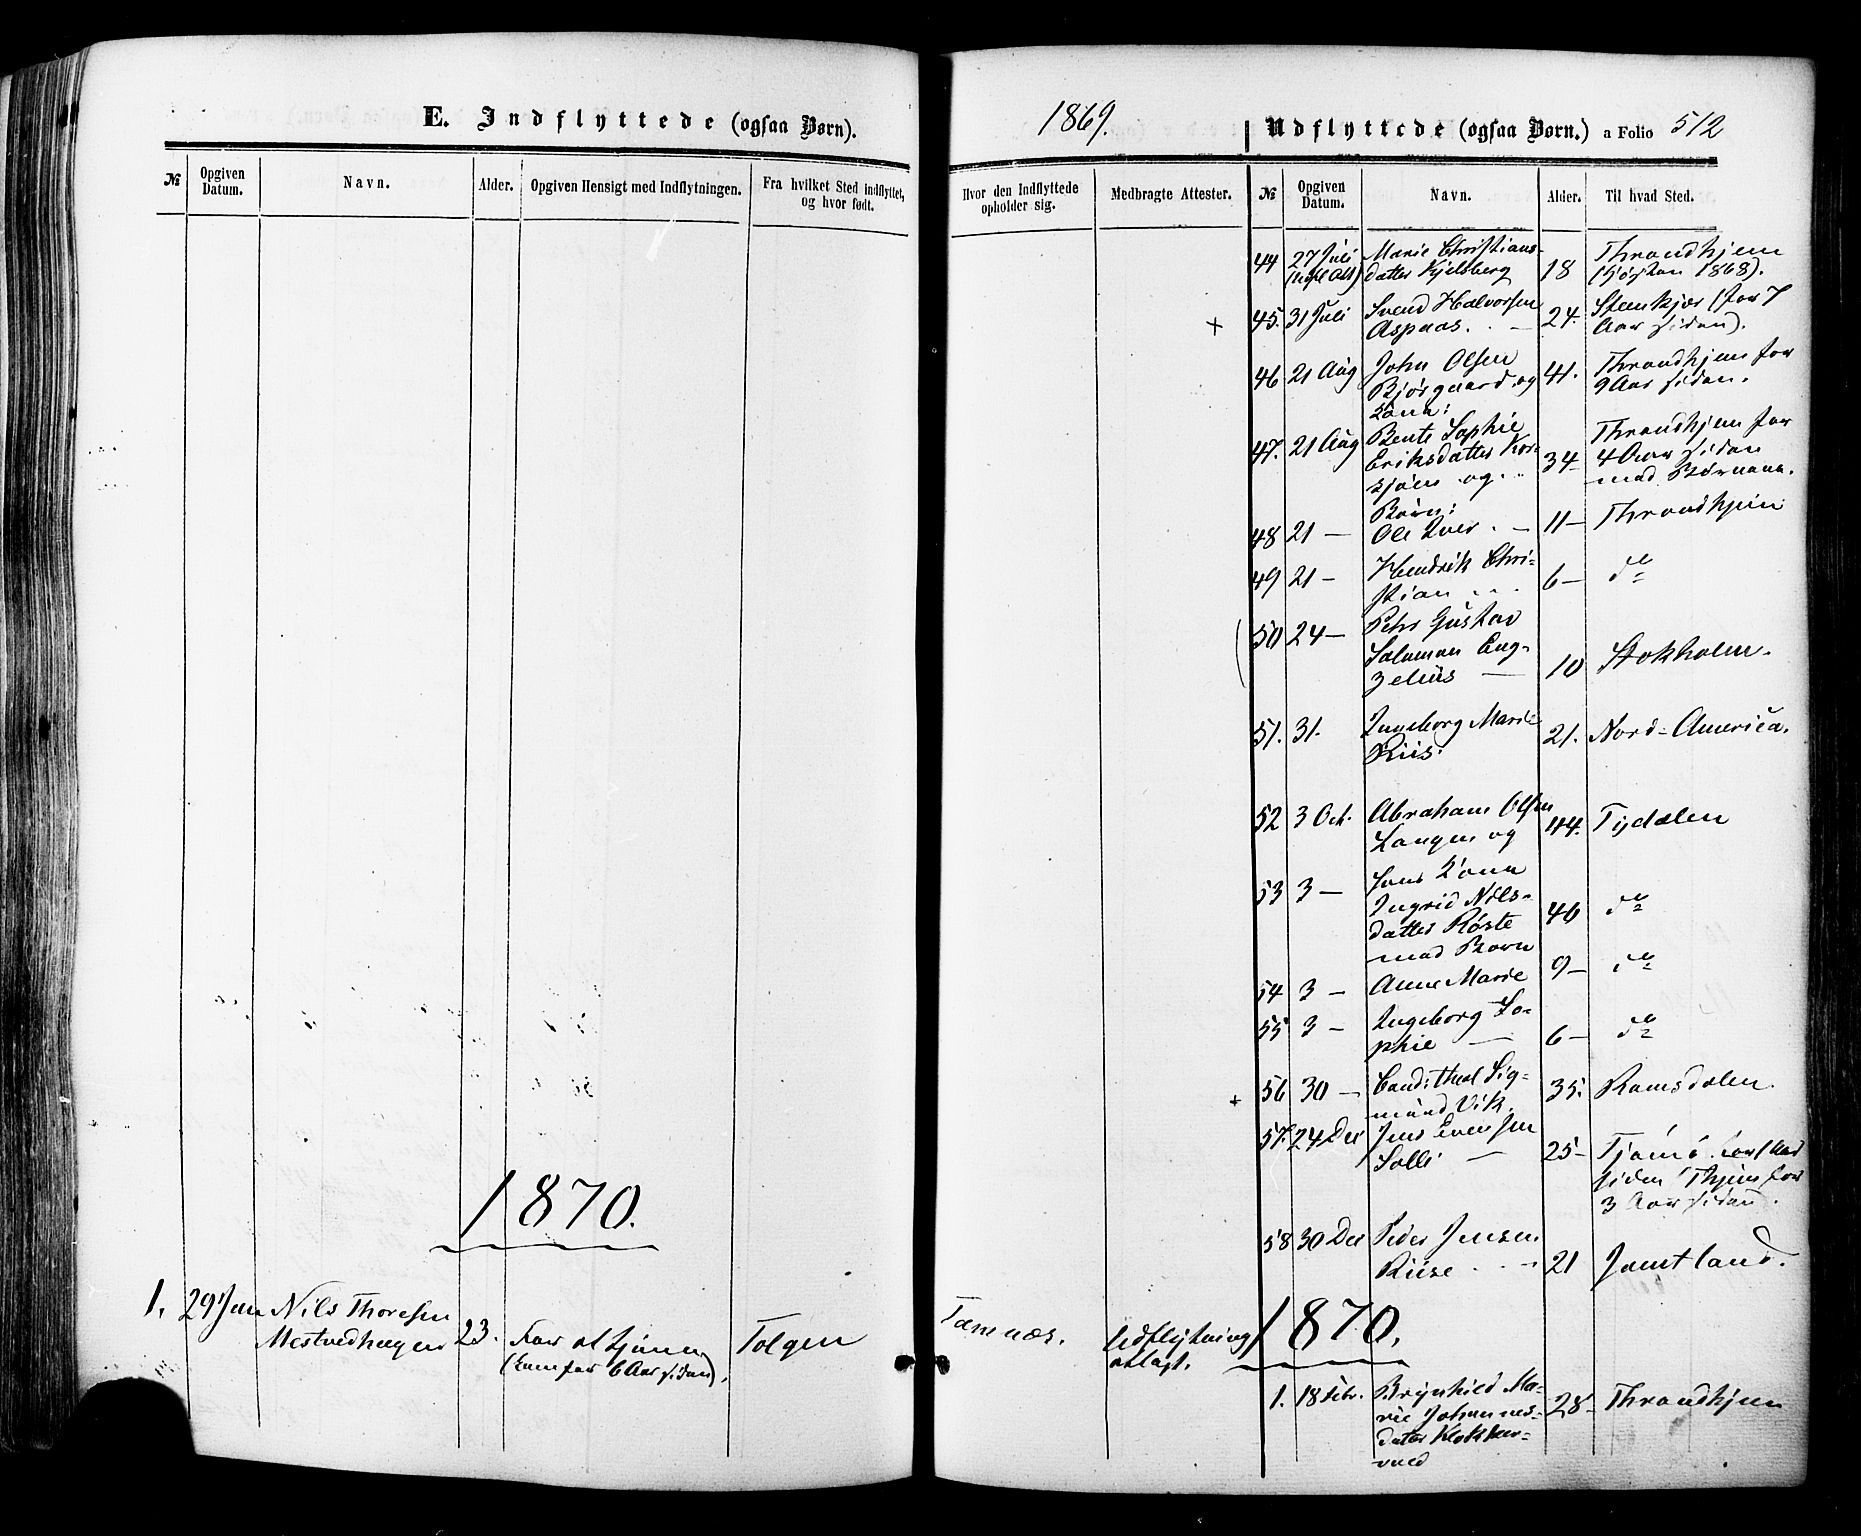 E. Indflyttede (ogsaa Børn).
№
Opgiven Datum.
Navn.
Alder.
Opgiven Hensigt med Indflytningen.
Fra hvilket Sted indflyttet, og hvor født.
1870.
1. 29 Jan Nils Thoresen 23. For at tjene Tolgen
(kom for 6 Aar siden).
1869.
Udflyttede (ogsaa Børn.) a Folio 512
Hvor den Indflyttede opholder sig.
Medbragte Attester.
№
Opgiven Datum.
Navn.
Alder.
Til hvad Sted.
44 27 Juli Marie Christians- 18 Throndhjem
datter Kjelsberg (Høsten 1868).
+ 45. 31 Juli Svend Halvorsen 24. Stenkjær (for 7
Aspaas. Aar siden).
46 21 Aug John Olsen 41. Throndhjem for
Bjørgaard og 9 Aar siden.
Kone:
47. 21 Aug Bente Sophie 34 Throndhjem for
Eriksdatter Kor- 4 Aar siden
sjøen og med Børnene.
Børn:
48 21 — Ole Iver 11 — Throndhjem
49 21 — Hendrik Chri- 6 — do
stian
50 24 — Pehr Gustav
Salomon Eng- 10 Stokholm.
zelius —
51. 31. Ingeborg Marie 21. Nord-America.
Riis.
52 3 Oct. Abraham Olsen 44. Tydalen
Langen og
53 3 — hans Kone
Ingrid Nils- 46 do
datter Røste
med Børn
54 3 — Anne Marie 9 — do
55 3 — Ingeborg So- 6 — do
phie —
+ 56 30 — Cand. theol Sig- 35. Romsdalen.
mund Vik.
57. 24 Dec Jens Evensen 25 — Tjømø for 1 Aar
Solli — siden Thjem for
3 Aar siden.
58 30 Dec Peder Jensen
Riise 21 Jemtland.
Tamnes. Udflytning
atlagt.
1870.
1. 18 Febr. Brynhild Ma- 28 — Throndhjem
rie Johannes-
datter Klokker-